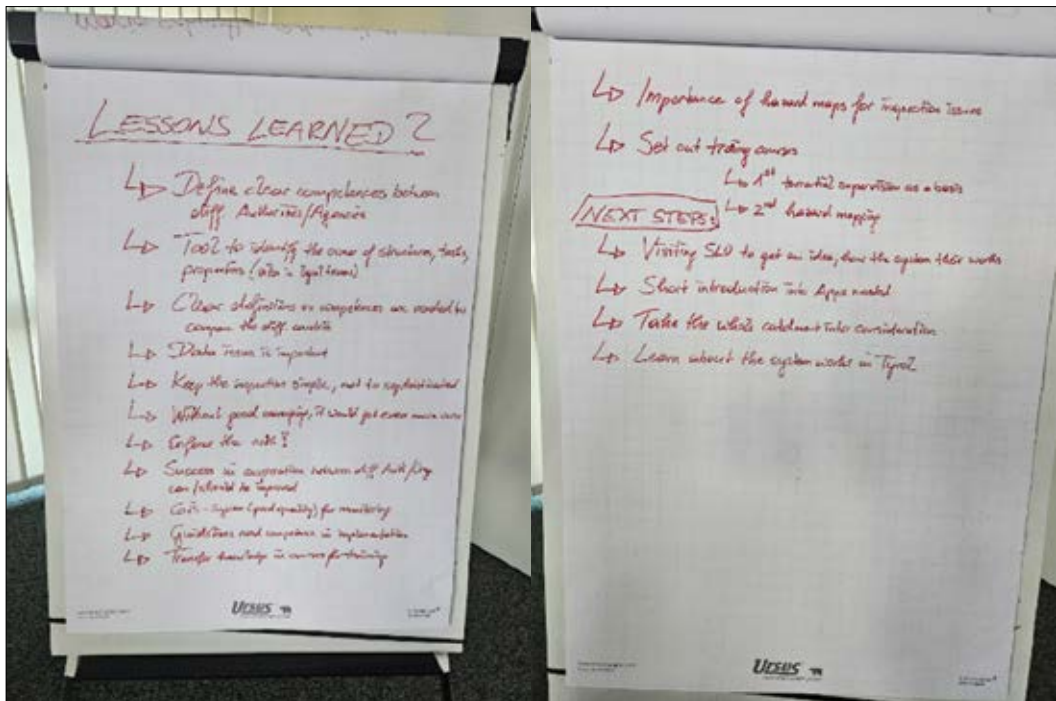 LESSONS LEARNED?
Define clear competences between
diff. Authorities/Agencies
Tool to identify the owner of structures, tasks,
properties (also in legal terms)
Clear definitions on competences are needed to
compare the diff. countries
Data issue is important
Keep the inspection simple, not to sophisticated
Without good it would get even more
Enforce the
Success in cooperation between diff.
can/should be improved
(good quality) for monitoring
Guidelines and competence in implementation
Transfer knowledge in courses for training
URSUS
Importance of hazard maps for inspection issues
Set out courses
1st supervision as a basis
2nd hazard mapping
NEXT STEPS:
Visiting SLO to get an idea, how the system their works
Short introduction into Apps needed
Take the whole catchment into consideration
Learn about the system works in Tyrol
URSUS